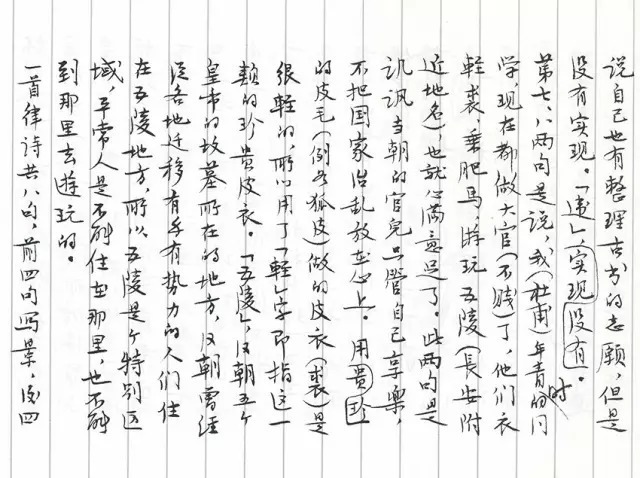 说自己也有整理古书的志愿，但是
没有实现。「违」，实现没有。
第七、八两句是说，我（杜甫）年青时的同
学，现在都做大官（不贱）了，他们衣
轻裘，乘肥马，游玩五陵（長安附
近地名），也就心满意足了。此两句是
讥讽当朝的官只管自己享乐，
不把国家治乱放在心上。用贵珍
的皮毛（例如狐皮）做的皮衣（裘）是
很轻的，所以用了「轻」字即指这一
类的珍贵皮衣。「五陵」，汉朝五个
皇帝的坟墓所在的地方，汉朝曾经
从各地迁移有有势力的人们住
在五陵地方，所以五陵是个特别区
域，平常人是不能住在那里，也不能
到那里去游玩的。
一首律诗共八句，前四句写景，后四